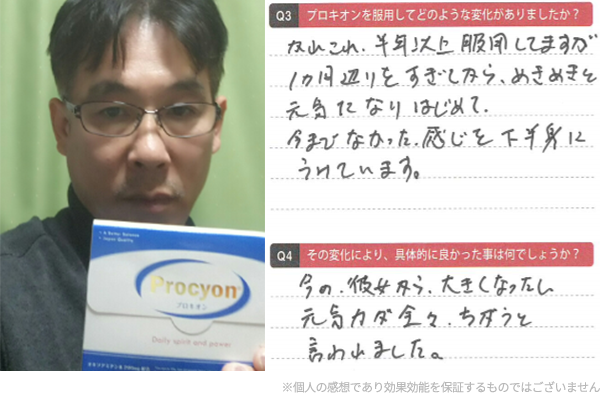 A Better Balance
Super Quality
Procyon
プロキオン
Daily spirit and power
Q3 プロキオンを服用してどのような変化がありましたか？
なんこれ、半年以上服用してますが
1カ月辺りをすぎてから、めきめきと
元気になりはじめて、
今までなかった感じを下半身に
うけています。
Q4 その変化により、具体的に良かった事は何でしょうか？
今の、彼女から、大きくなったし
元気力が全々、ちがうと
言われました。
※個人の感想であり効果効能を保証するものではございません